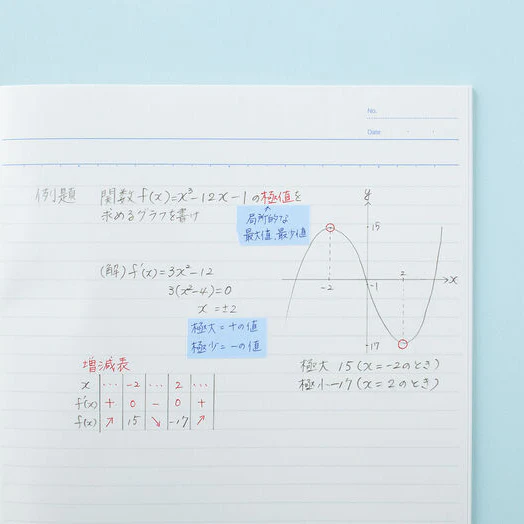 No.
Date
例題 関数 f(x)=x³-12x-1の極値を
求めるグラフを書け
局所的な
最大値、最少値
(解) f'(x)=3x²-12
3(x²-4)=0
x=±2
極大=+の値
極少=-の値
増減表
x … -2 … 2 …
f'(x) + 0 - 0 +
f(x) ↗ 15 ↘ -17 ↗
y
15
2
-2
-1
x
-17
極大 15 (x=-2のとき)
極小-17 (x=2のとき)